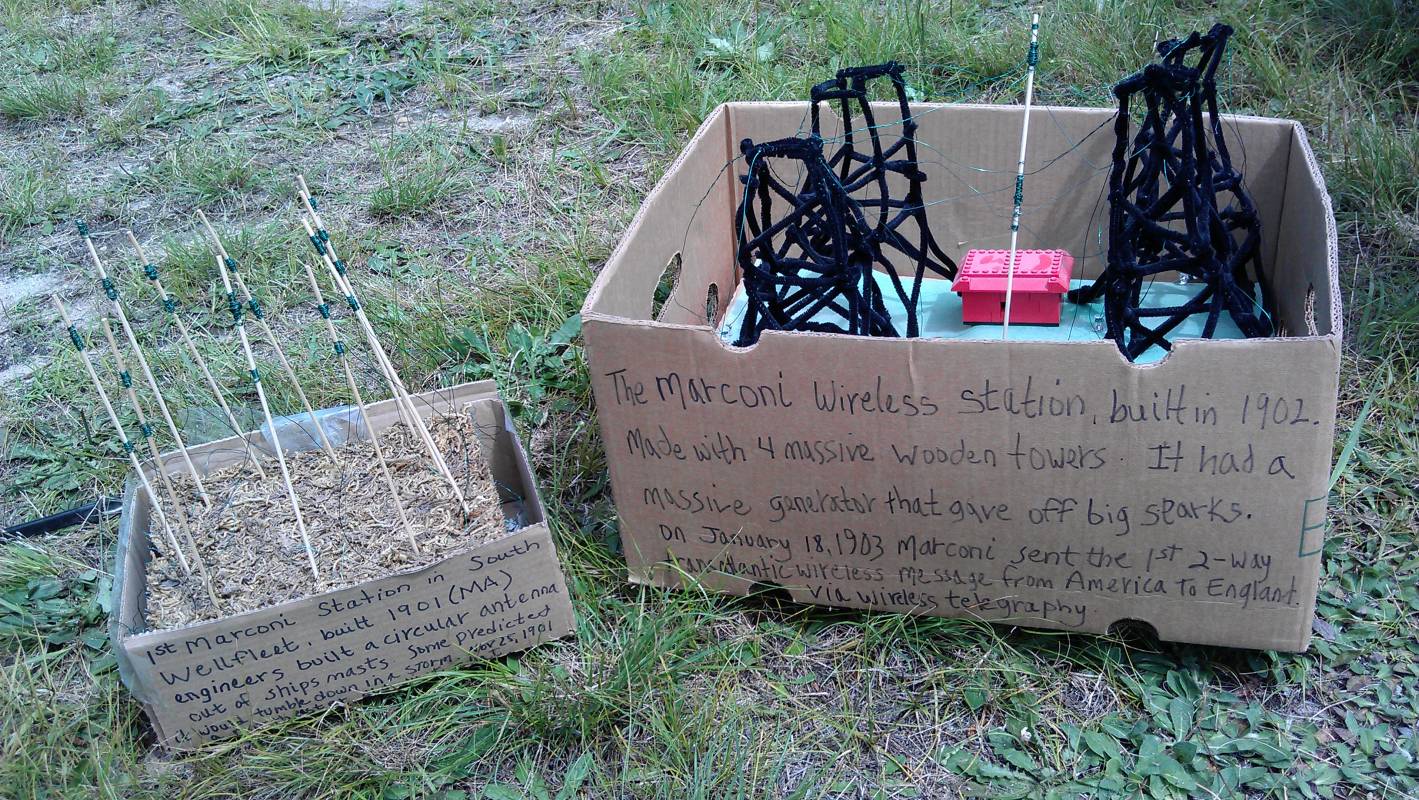 1st Marconi Station in South
Wellfleet built 1901 (MA)
engineers built a circular antenna
out of ships masts. Some predicted
it would tumble down in a storm. Nov 25, 1901
The Marconi Wireless station, built in 1902.
Made with 4 massive wooden towers. It had a
massive generator that gave off big sparks.
on January 18, 1903 Marconi sent the 1st 2-way
transatlantic wireless message from America To England.
via wireless telegraphy.